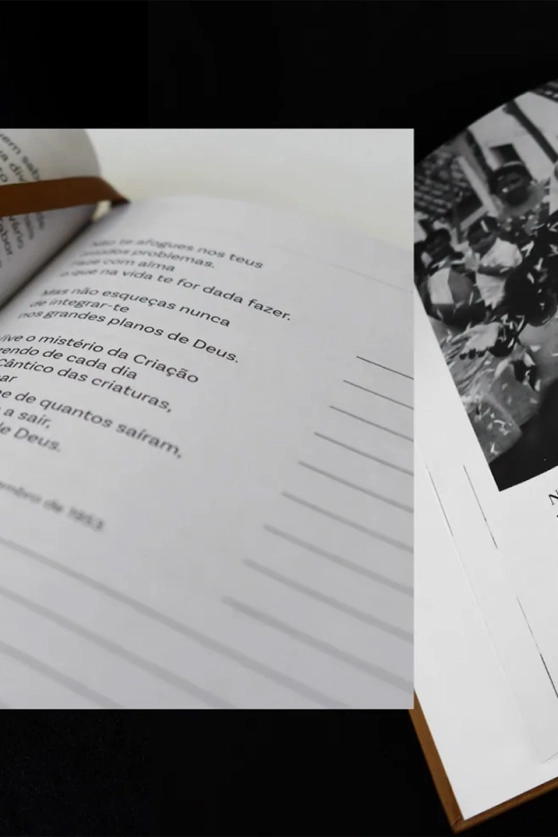 Não te afogues nos teus
miúdos problemas.
Faze com alma
o que na vida te for dada fazer.
Mas não esqueças nunca
de integrar-te
nos grandes planos de Deus.
ive o mistério da Criação
endo de cada dia
Cântico das criaturas,
ar
e de quantos saíram,
a sair,
e Deus.
embro de 1953
N